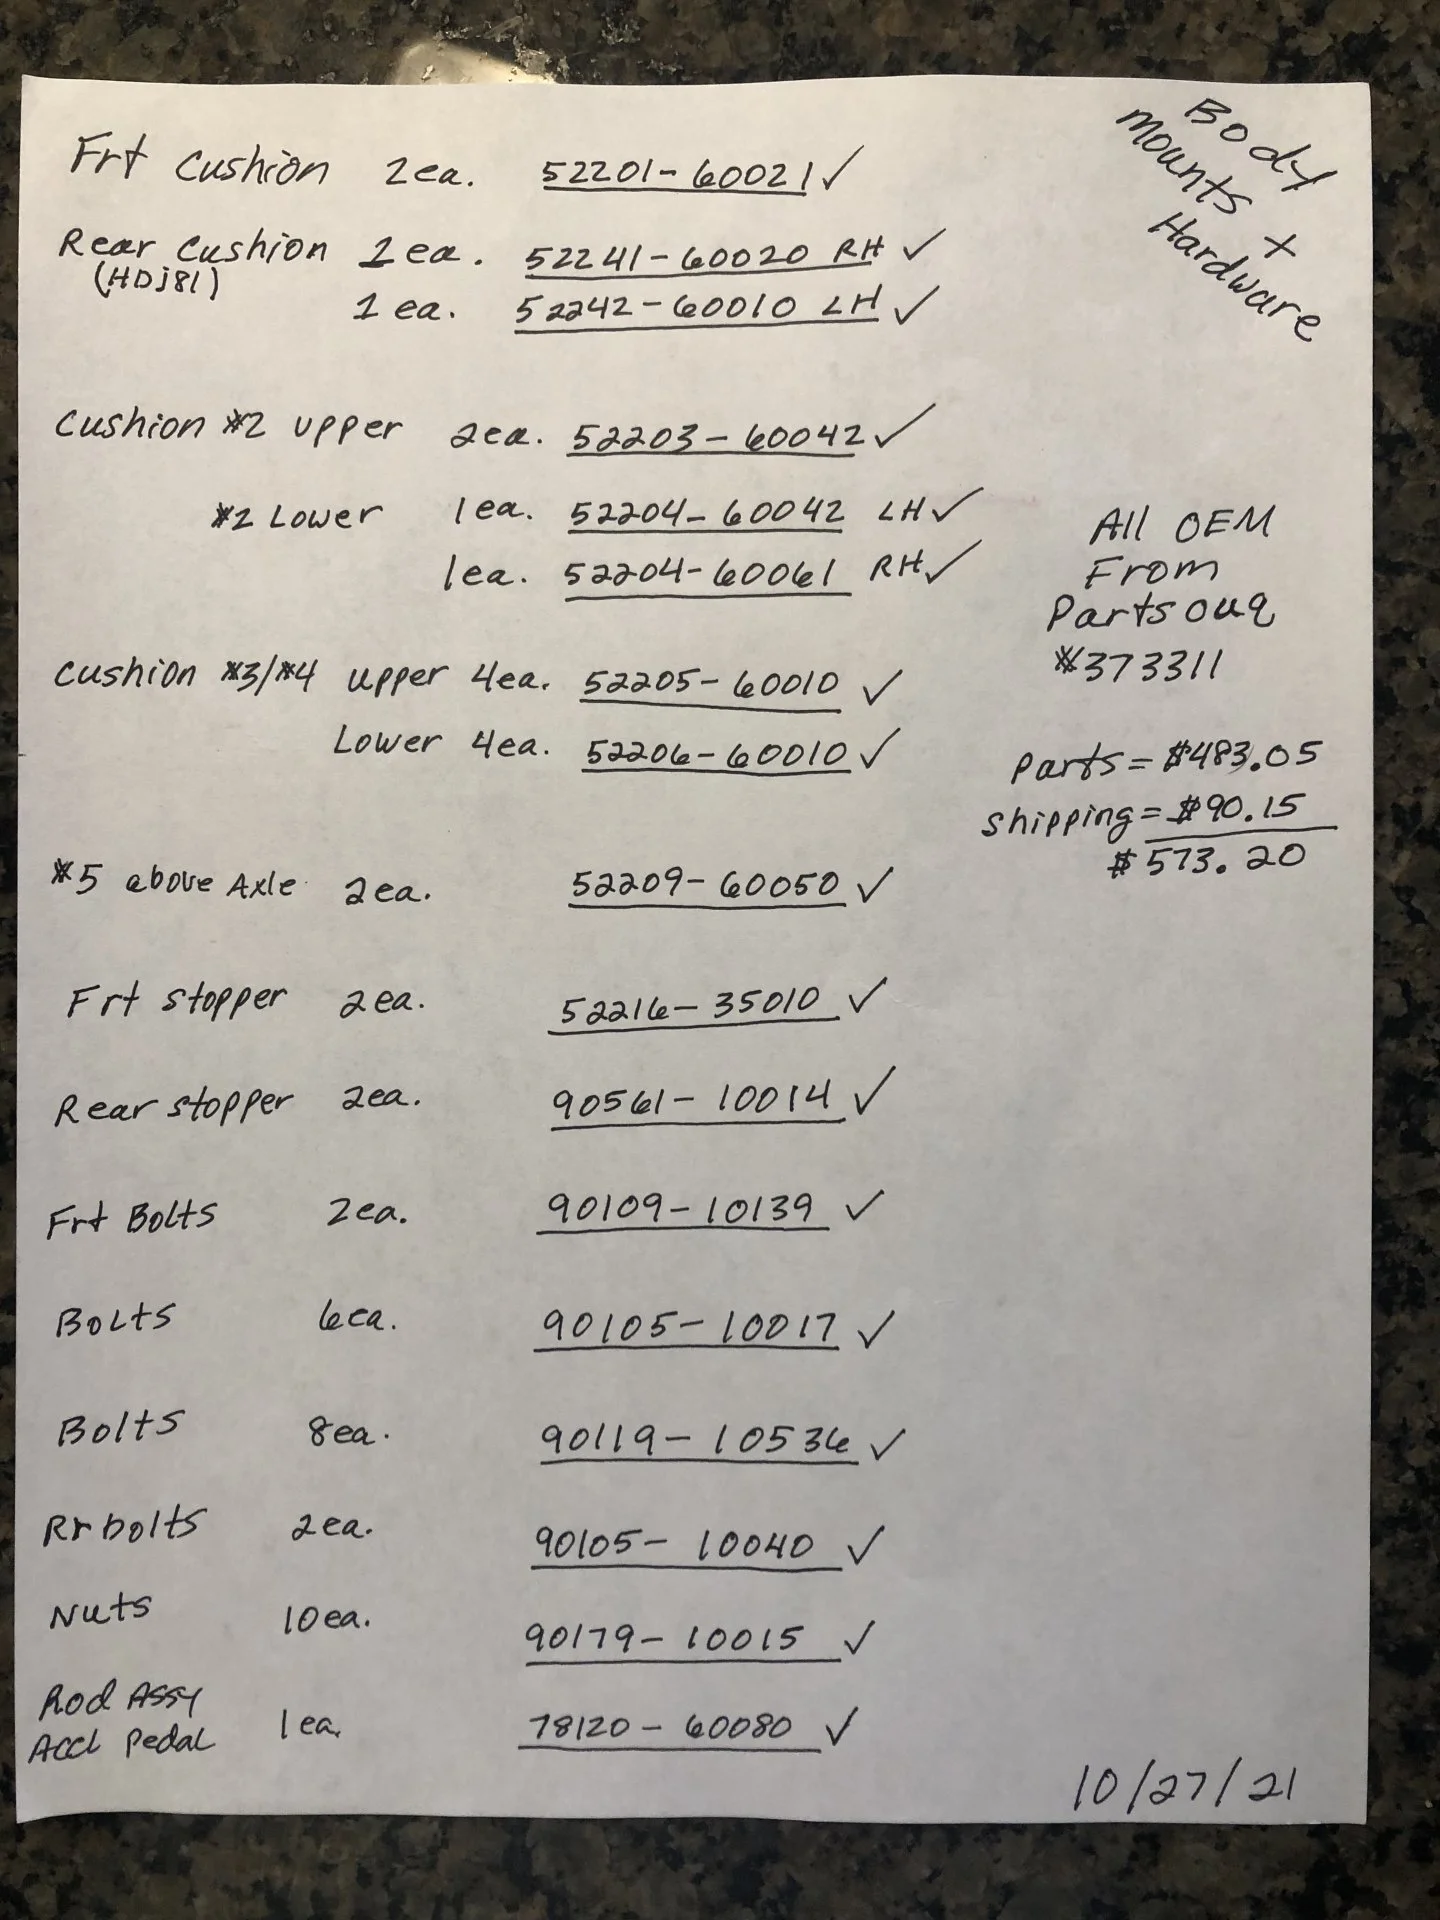 Body
Mounts +
Hardware
Frt Cushion 2ea. 52201-60021 ✓
Rear Cushion 1ea. 52241-60020 RH ✓
(HDJ81)
1 ea. 52242-60010 LH ✓
Cushion #2 upper 2ea. 52203-60042 ✓
#2 Lower 1ea. 52204-60042 LH ✓
1ea. 52204-60061 RH ✓
Cushion #3/#4 upper 4ea. 52205-60010 ✓
Lower 4ea. 52206-60010 ✓
#5 above Axle 2ea. 52209-60050 ✓
Frt stopper 2ea. 52216-35010 ✓
Rear stopper 2ea. 90561-10014 ✓
Frt Bolts 2ea. 90109-10139 ✓
Bolts 6ea. 90105-10017 ✓
Bolts 8ea. 90119-10536 ✓
Rr bolts 2ea. 90105-10040 ✓
Nuts 10ea. 90179-10015 ✓
Rod Assy
Accl Pedal 1ea. 78120-60080 ✓
All OEM
From
Partsouq
#373311
Parts = $483.05
Shipping = $90.15
$573.20
10/27/21